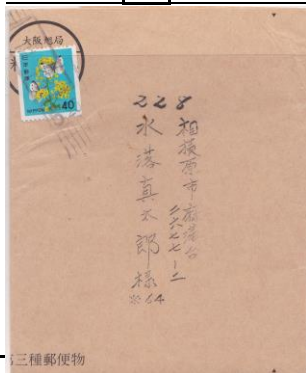 大阪中央局
日本郵便
NIPPON 40
228
相模原市麻溝台
二六七七-二
水落真太郎様
第三種郵便物